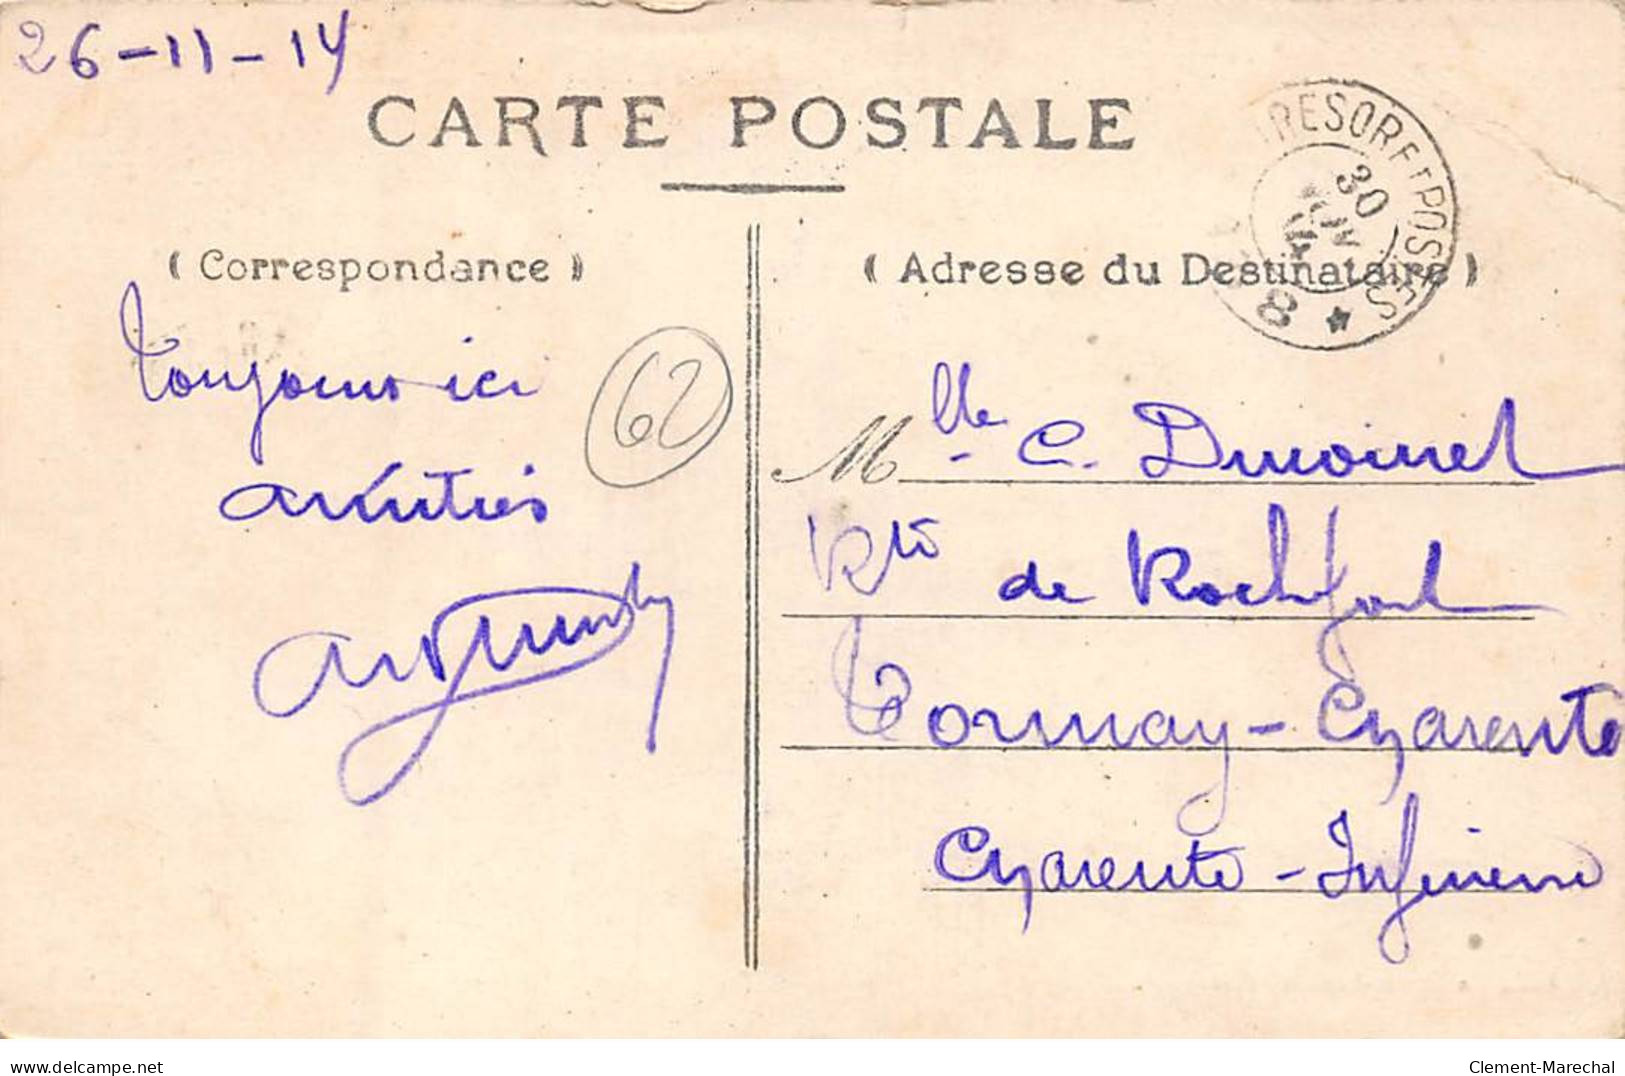 26-11-14
CARTE POSTALE
TRESOR ET POSTES
30
14
8
( Correspondance )
( Adresse du Destinataire )
Toujours ici
62
Mlle C.
Rte de Rochefort
Tonnay-Charente
Charente-Inférieure
delcampe.net
Clement-Marechal